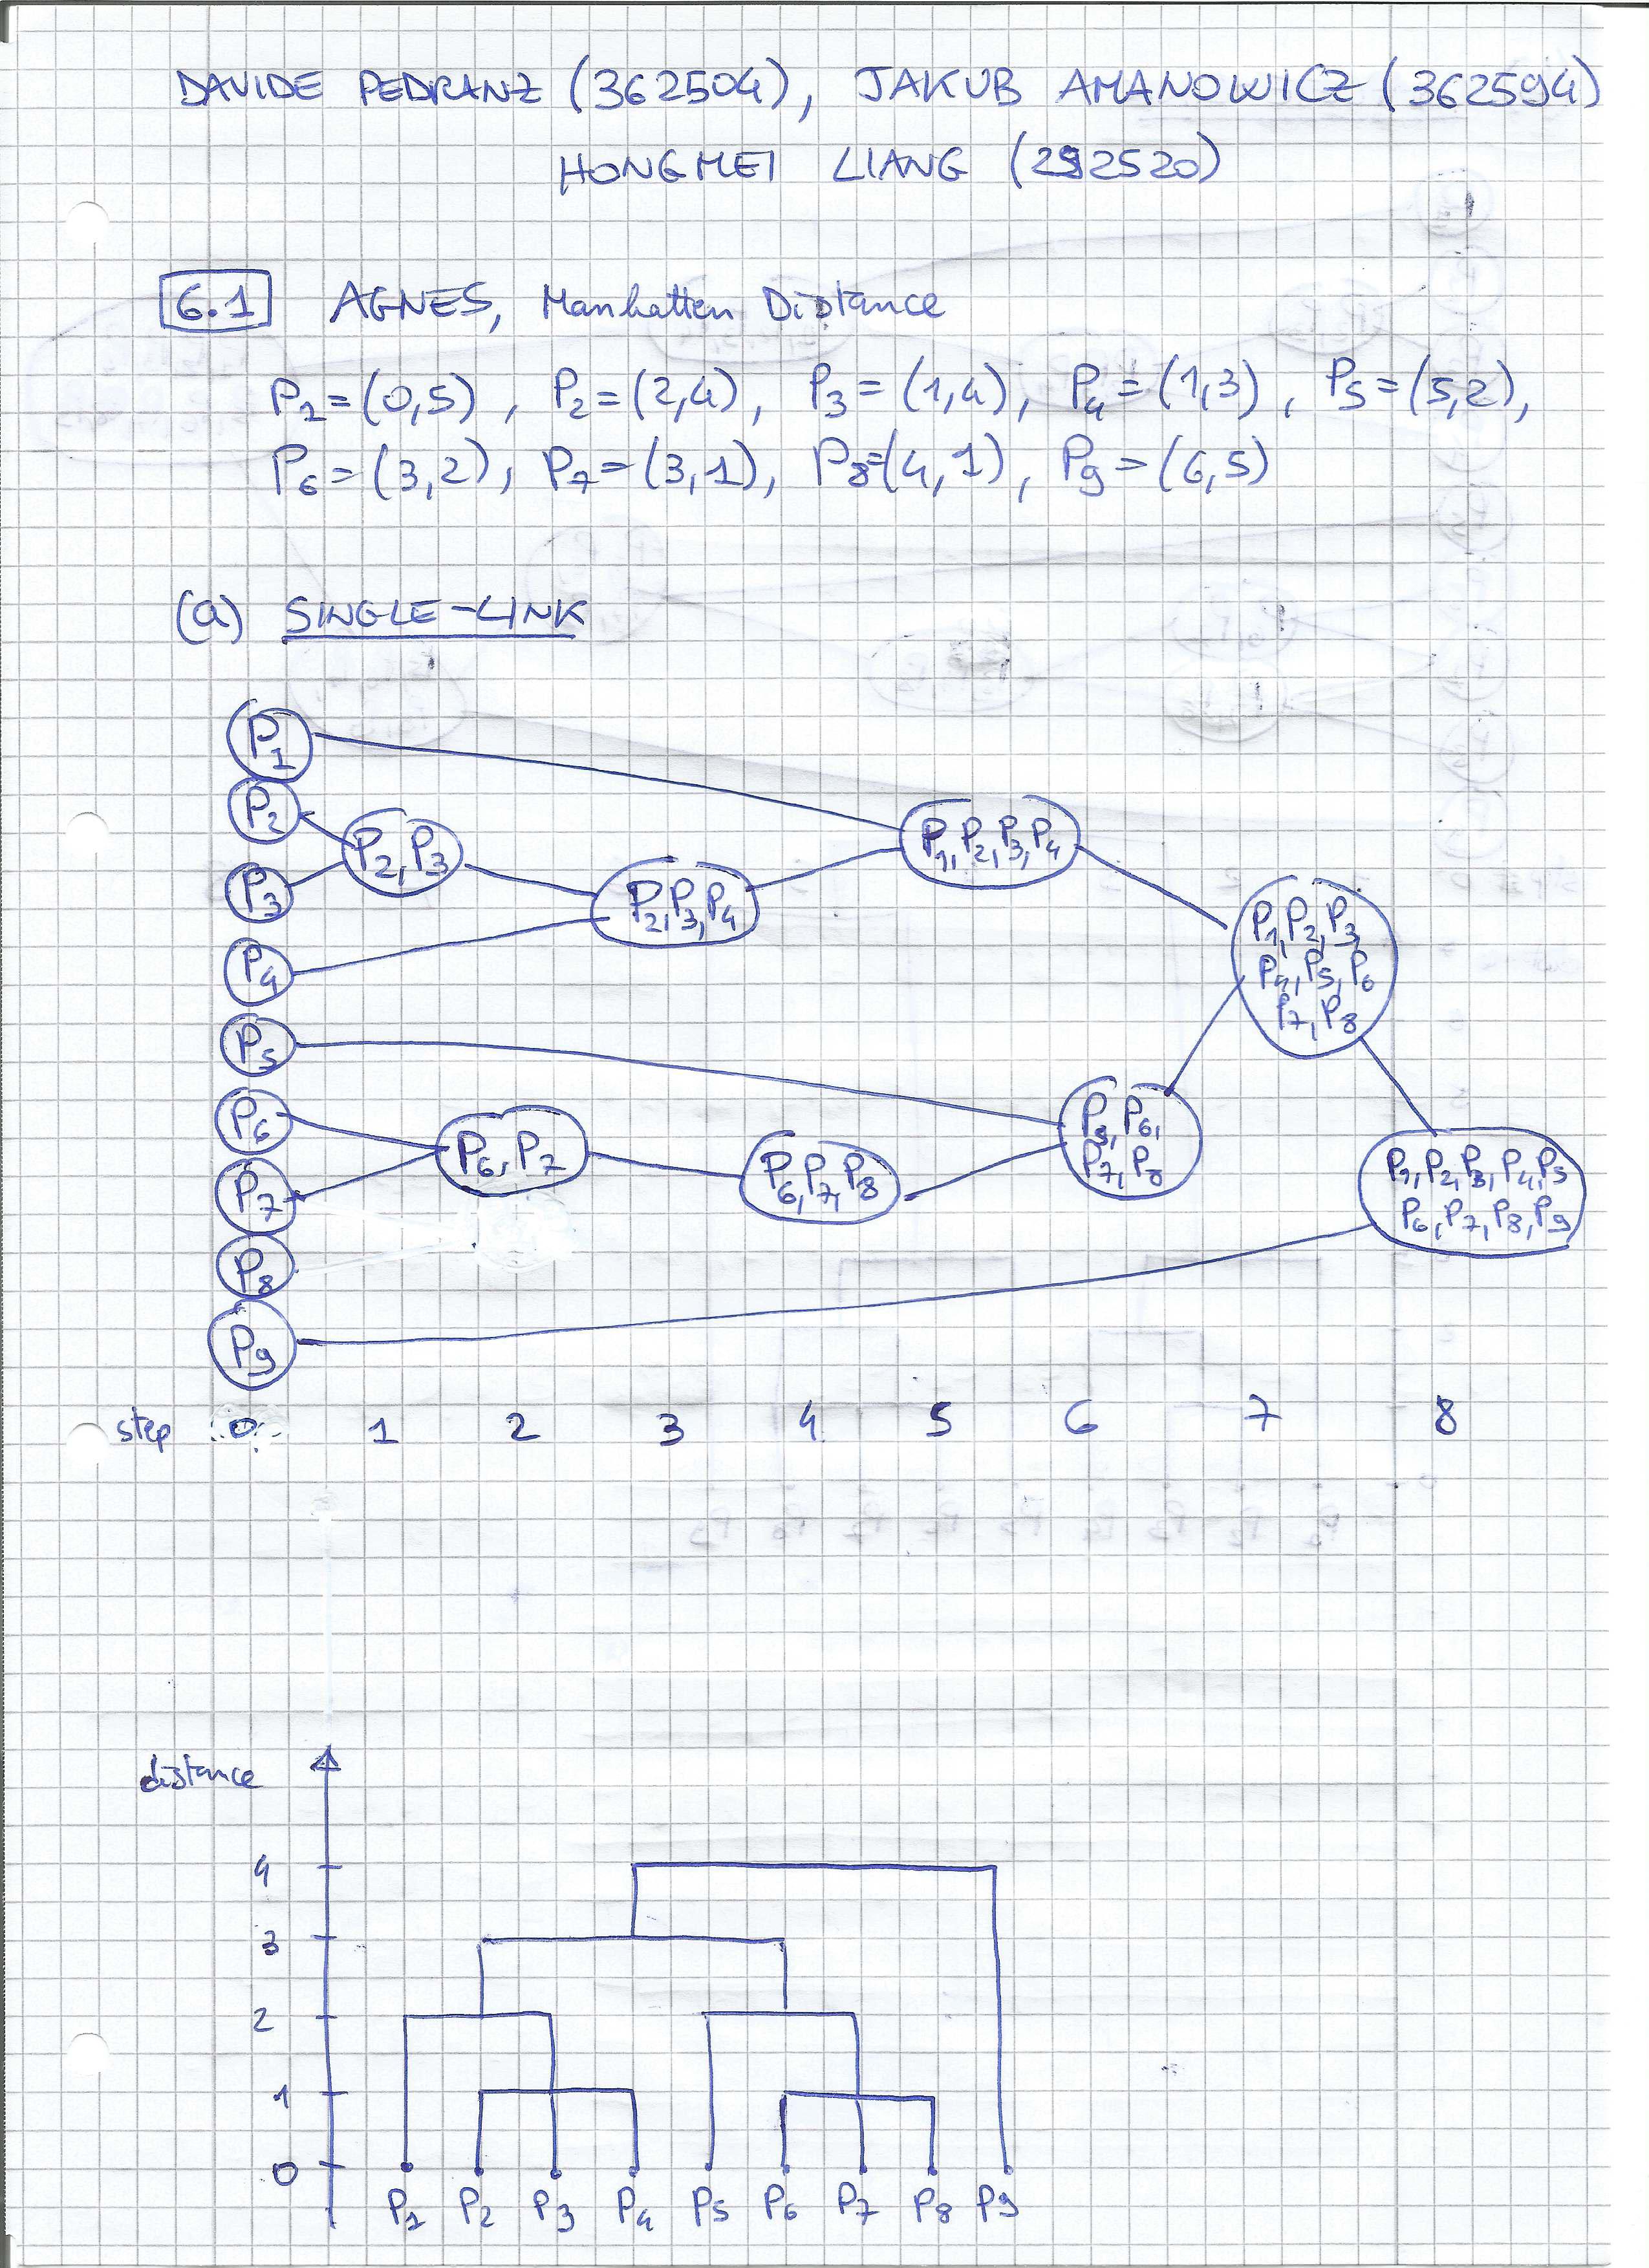 DAVIDE PEDRANZ (362504), JAKUB AMANOWICZ (362594)
HONGMEI LIANG (292520)
6.1 AGNES, Manhatten Distance
P1=(0,5), P2=(2,4), P3=(1,4), P4=(1,3), P5=(5,2),
P6=(3,2), P7=(3,1), P8=(4,1), P9=(6,5)
(a) SINGLE-LINK
P1
P2
P3
P4
P5
P6
P7
P8
P9
P2,P3
P2,P3,P4
P1,P2,P3,P4
P6,P7
P6,P7,P8
P5,P6,
P7,P8
P1,P2,P3,
P4,P5,P6
P7,P8
P1,P2,P3,P4,P5
P6,P7,P8,P9
step 0 1 2 3 4 5 6 7 8
distance
4
3
2
1
0
P1 P2 P3 P4 P5 P6 P7 P8 P9